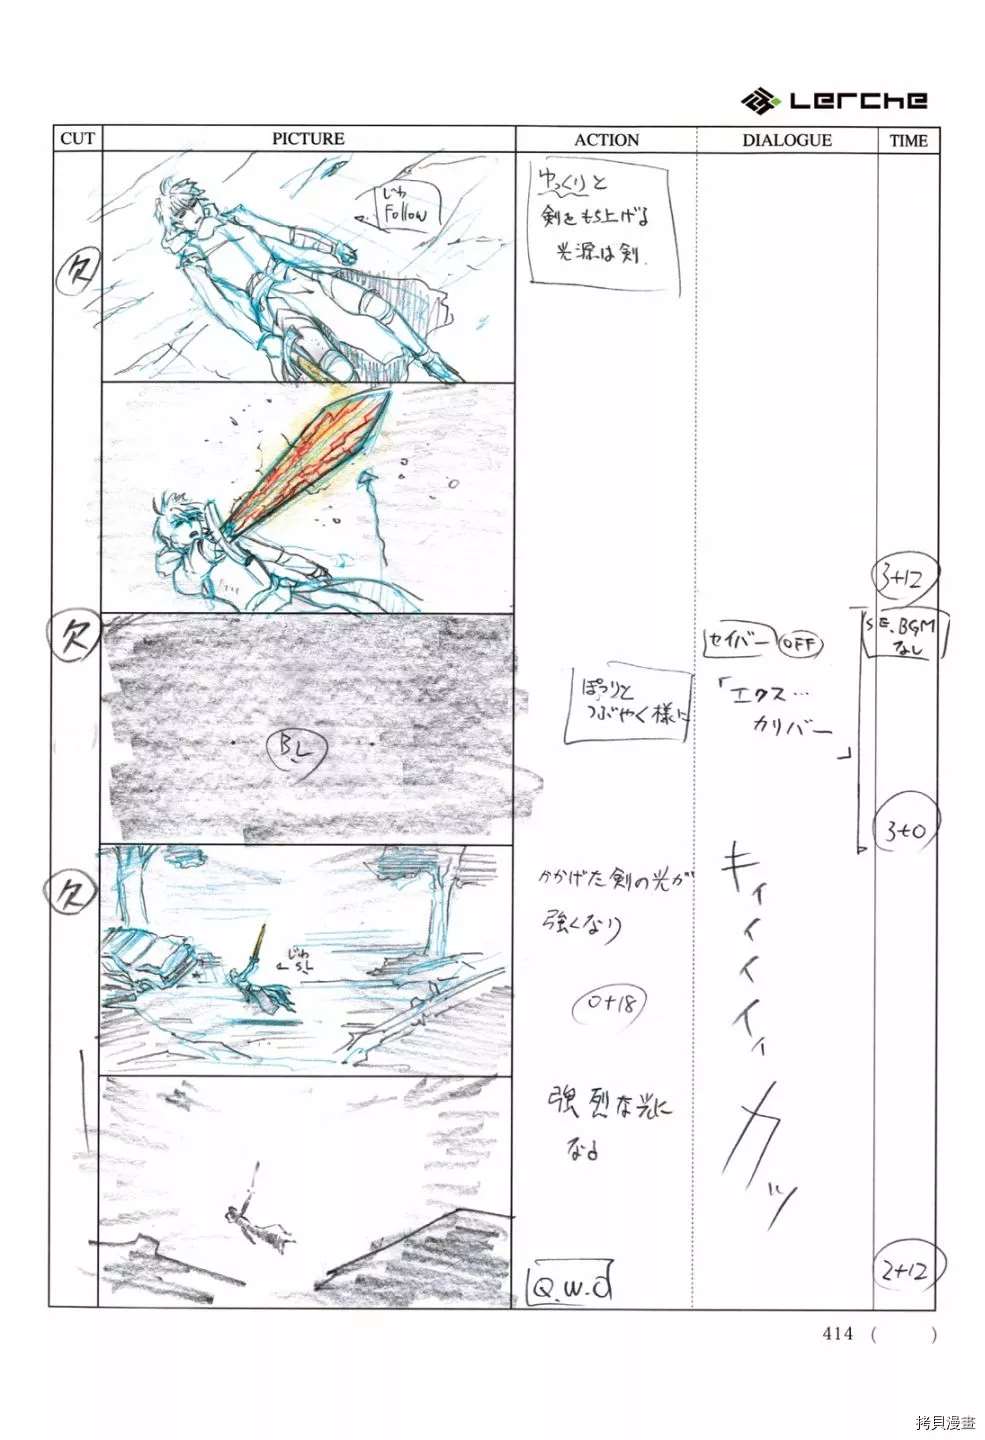 Lerche
CUT
PICTURE
ACTION
DIALOGUE
TIME
欠
じわ
Follow
ゆっくりと
剣をもち上げる
光源は剣.
3+12
欠
B.L
ぽつりと
つぶやく様に
セイバー OFF
「エクス…
カリバー
」
S.E. BGM
なし
3+0
欠
じわ
S.L
かかげた剣の光が
強くなり
0+18
キィィィィィ
強烈な光に
なる
カッ
Q.W.O
2+12
414 (　　)
拷貝漫畫